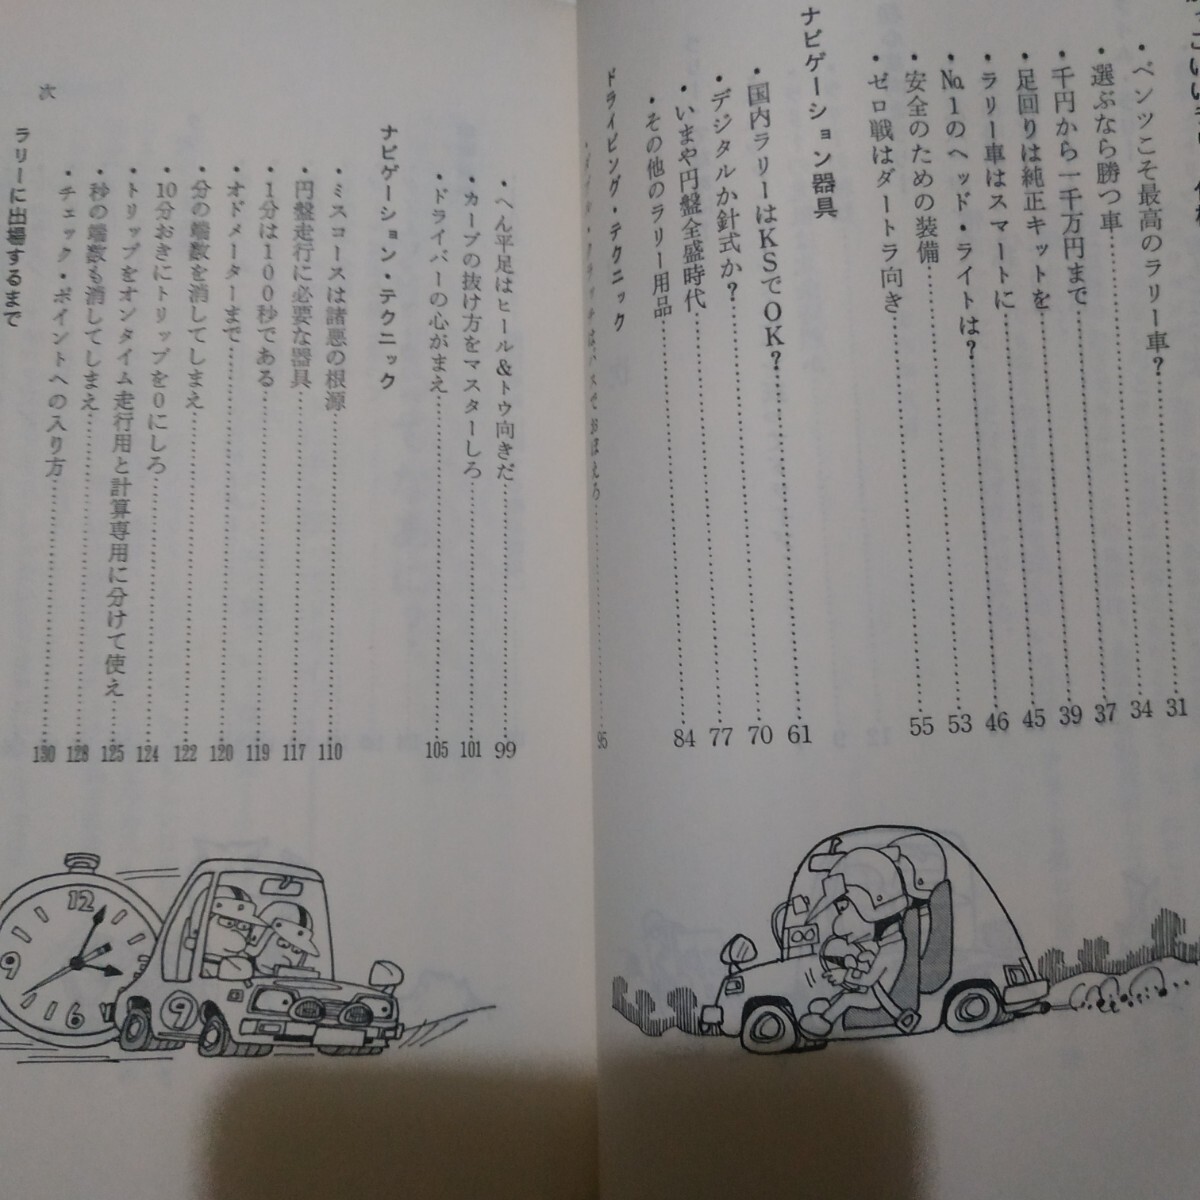 ・ベンツこそ最高のラリー車?……31
・選ぶなら勝つ車……34
・千円から一千万円まで……37
・足回りは純正キットを……39
・ラリー車はスマートに……45
・No.1のヘッド・ライトは?……46
・安全のための装備……53
・ゼロ戦はダートラ向き……55
ナビゲーション器具
・国内ラリーはKSでOK?……61
・デジタルか針式か?……70
・いまや円盤全盛時代……77
・その他のラリー用品……84
ドライビング・テクニック
95
・へん平足はヒール&トウ向きだ……99
・カーブの抜け方をマスターしろ……101
・ドライバーの心がまえ……105
ナビゲーション・テクニック
・ミスコースは諸悪の根源……110
・円盤走行に必要な器具……117
・1分は100秒である……119
・オドメーターまで……120
・分の端数を消してしまえ……122
・10分おきにトリップを0にしろ……124
・トリップをオンタイム走行用と計算専用に分けて使え……125
・秒の端数も消してしまえ……128
・チェック・ポイントへの入り方……130
ラリーに出場するまで
次
12
9
6
9